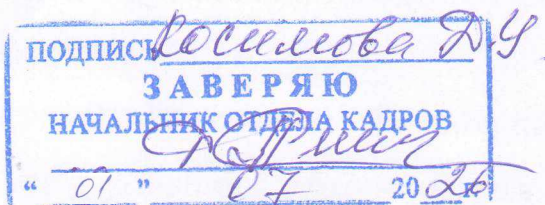 ПОДПИСЬ Косимова Д.У
ЗАВЕРЯЮ
НАЧАЛЬНИК ОТДЕЛА КАДРОВ
“ 01 ” 07 2026г